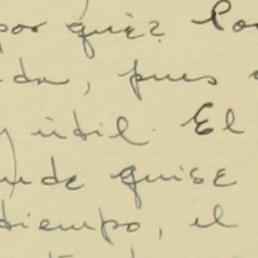 por qué? Po
da, pues
y útil. El
nde quise
tiempo, el